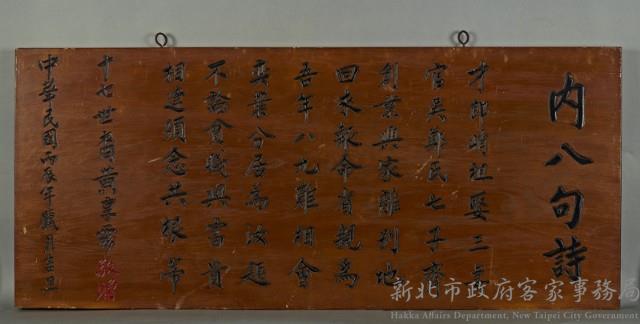 內八句詩
才郎峭祖娶三妻
官吳鄭氏七子齊
創業興家離別地
回來敘命省親為
吾年八九難相會
棄業分居為汝題
不論貧賤與富貴
相逢須念共根蒂
十七世裔黃享雲敬
中華民國丙辰年臘月吉旦
新北市政府客家事務局
Hakka Affairs Department, New Taipei City Government